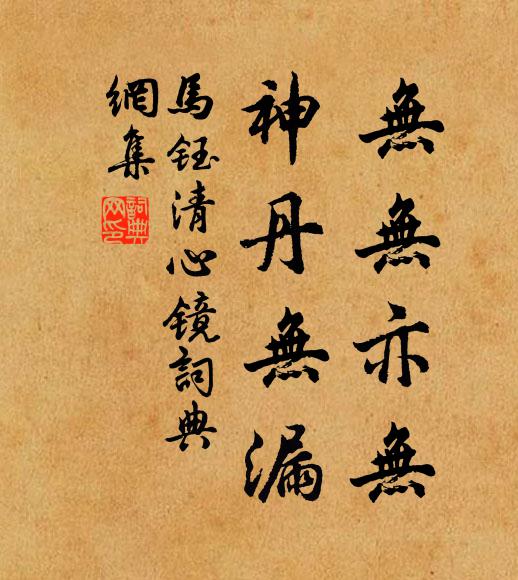 無無亦無
神丹無漏
馬鈺清心镜詞典
網集
詞典网印